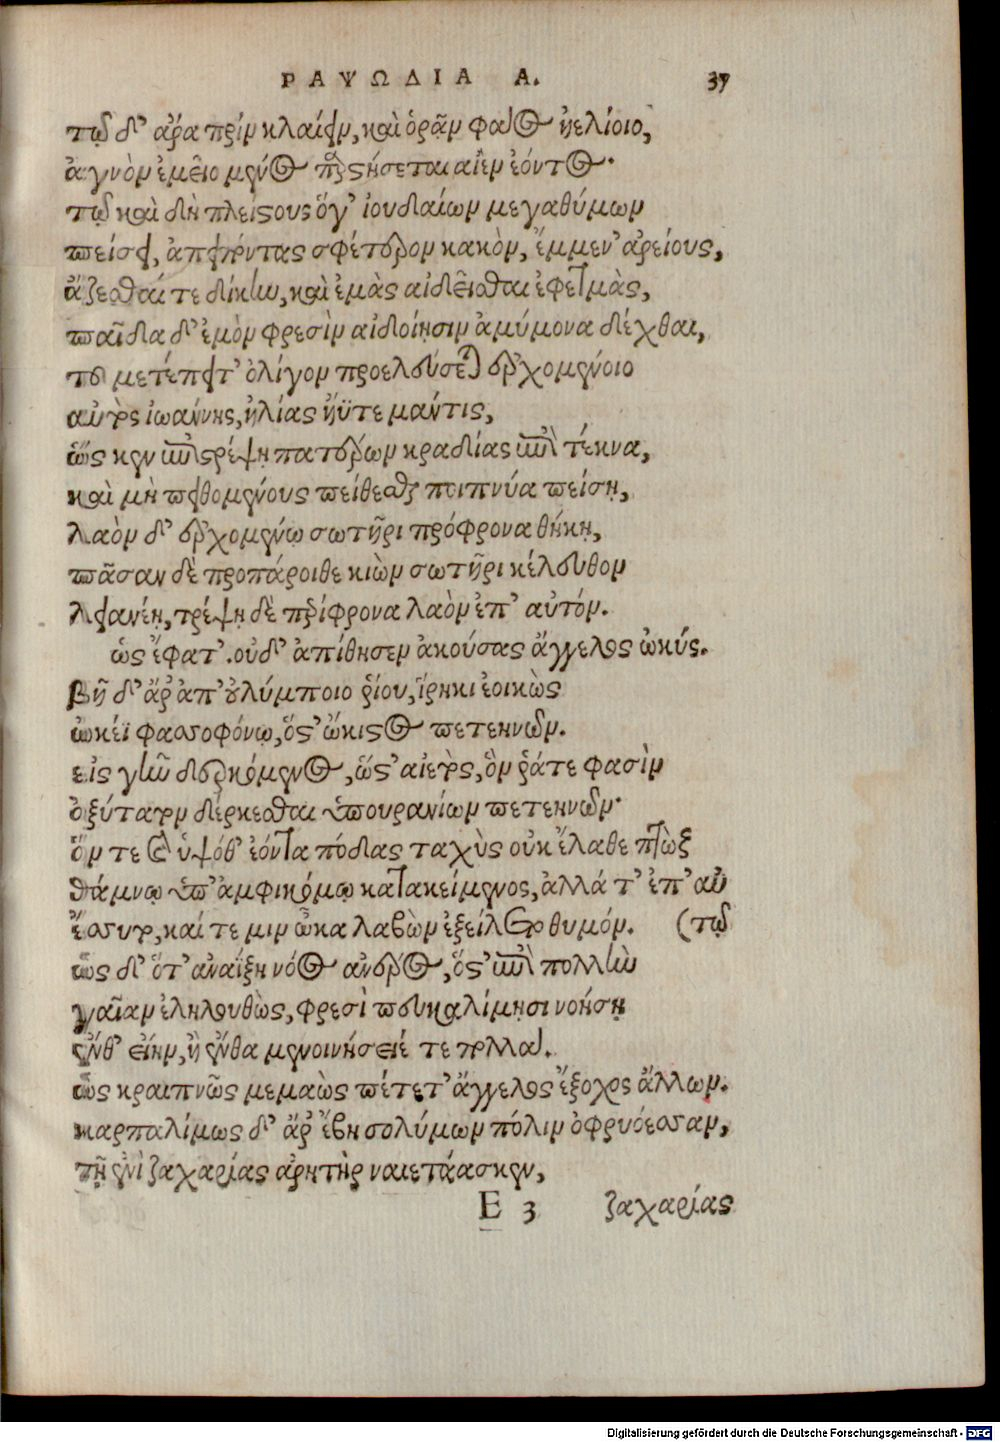 ΡΑΨΩΔΙΑ Α. 37
τῷ δ' ἄρα πρὶν κλαίειν, καὶ ὁρᾶν φάος ἠελίοιο,
ἁγνὸν ἐμεῖο μένος παραστήσεται αἰὲν ἐόντος·
τῷ καὶ δὴ πλείστους ὅγ' ἰουδαίων μεγαθύμων
πείσει, ἀπειπόντας σφέτερον κακὸν, ἔμμεν' ἀρείους,
ἅζεσθαί τε δίκην, καὶ ἐμὰς αἰδεῖσθαι ἐφετμὰς,
παῖδα δ' ἐμὸν φρεσὶν αἰδοίῃσιν ἀμύμονα δέχθαι,
τοῦ μετέπειτ' ὀλίγον προελεύσεται ἐρχομένοιο
αὐτὸς ἰωάννης, ἠλίας ἠΰτε μάντις,
ὥς κεν ἐπιστρέψῃ πατέρων κραδίας ἐπὶ τέκνα,
καὶ μὴ πειθομένους πείθεσθαι ποιπνύα πείσῃ,
λαὸν δ' ἐρχομένῳ σωτῆρι πρόφρονα θήκῃ,
πᾶσαν δὲ προπάροιθε κιὼν σωτῆρι κέλευθον
λειανέῃ, τρέψῃ δὲ περίφρονα λαὸν ἐπ' αὐτόν.
ὡς ἔφατ'. οὐδ' ἀπίθησεν ἀκούσας ἄγγελος ὠκύς.
βῆ δ' ἄρ' ἀπ' οὐλύμποιο ῥίου, ἴρηκι ἐοικὼς
ὠκέϊ φασσοφόνῳ, ὅστ' ὤκιστος πετεηνῶν.
εἰς γῆν δερκόμενος, ὥστ' αἰετὸς, ὅν ῥάτε φασὶν
ὀξύτατον δέρκεσθαι ὑπουρανίων πετεηνῶν·
ὅν τε καὶ ὑψόθ' ἐόντα πόδας ταχὺς οὐκ ἔλαθε πτὼξ
θάμνῳ ὑπ' ἀμφικόμῳ κατακείμενος, ἀλλά τ' ἐπ' αὐ
ἔσσυτο, καί τε μιν ὦκα λαβὼν ἐξείλετο θυμόν. (τῷ
ὡς δ' ὅτ' ἀναΐξῃ νόος ἀνέρος, ὅστ' ἐπὶ πολλὴν
γαῖαν ἐληλουθὼς, φρεσὶ πευκαλίμῃσι νοήσῃ
ἔνθ' εἴην, ἢ ἔνθα μενοινήσειέ τε πολλά.
ὣς κραιπνῶς μεμαὼς πέτετ' ἄγγελος ἔξοχος ἄλλων.
καρπαλίμως δ' ἄρ' ἔβη σολύμων πόλιν ὀφρυόεσσαν,
τῇ ἐνὶ ζαχαρίας ἀρητὴρ ναιετάασκεν,
E 3 ζαχαρίας
Digitalisierung gefördert durch die Deutsche Forschungsgemeinschaft - DFG